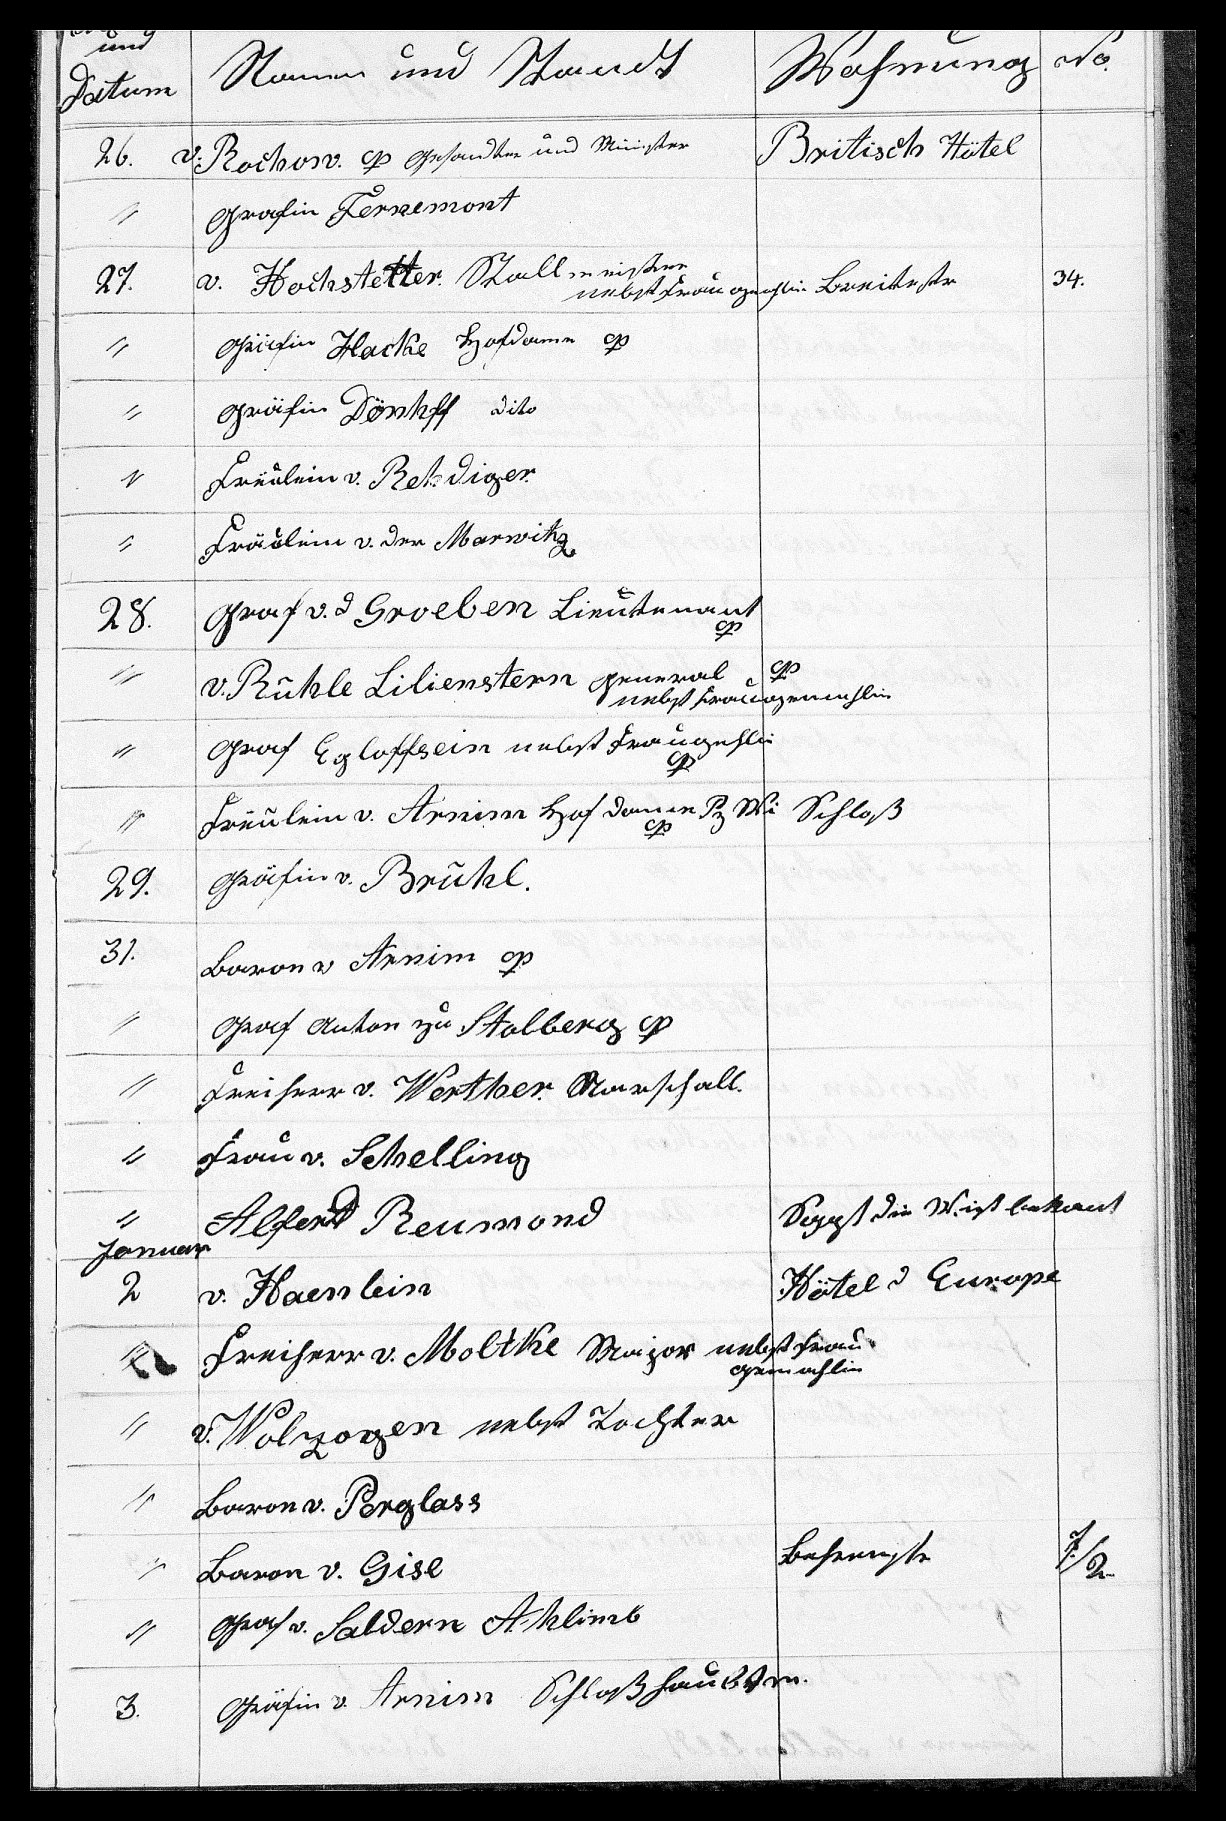 und
Datum Namen und Standt Wohnung No.
26. v. Rochow. cp Gesandter und Minister Britisch Hötel
〃 Grafin Fernemont
27. v. Hochstetter. Stallmeister
nebst Fraugemahlin Breitestr 34.
〃 Gräfin Hacke Hofdame cp
〃 Gräfin Dönhff dito
〃 Freülein v. Rehdiger.
〃 Fräülein v. der Marwitz
28. Graf v. d Groeben Lieutenant
cp
〃 v. Rühle Lilienstern General cp
nebst Fraugemahlin
〃 Graf Egloffsein nebst Fraugehlin
cp
〃 Freülein v. Arnim Hof dame Pz Wi Schloß
cp
29. Gräfin v. Brühl.
31. Baron v Arnim cp
〃 Graf Anton zu Stolberg cp
〃 Freiherr v. Werther. Marschall.
〃 Frau v. Schelling
〃 Alferd Reumond Sagst die W. ist bekant
Januar
2 v. Haenlein Hötel d Europe
〃 Freiherr v. Moltke Major nebst Frau
gemahlin
〃 v. Wolzogen nebst Tochter
〃 Baron v. Perglass
〃 Baron v. Gise Behrengstr 1/2
〃 Graf v. Saldern Ahlimb
3. Gräfin v. Arnim Schloßhaubtm.